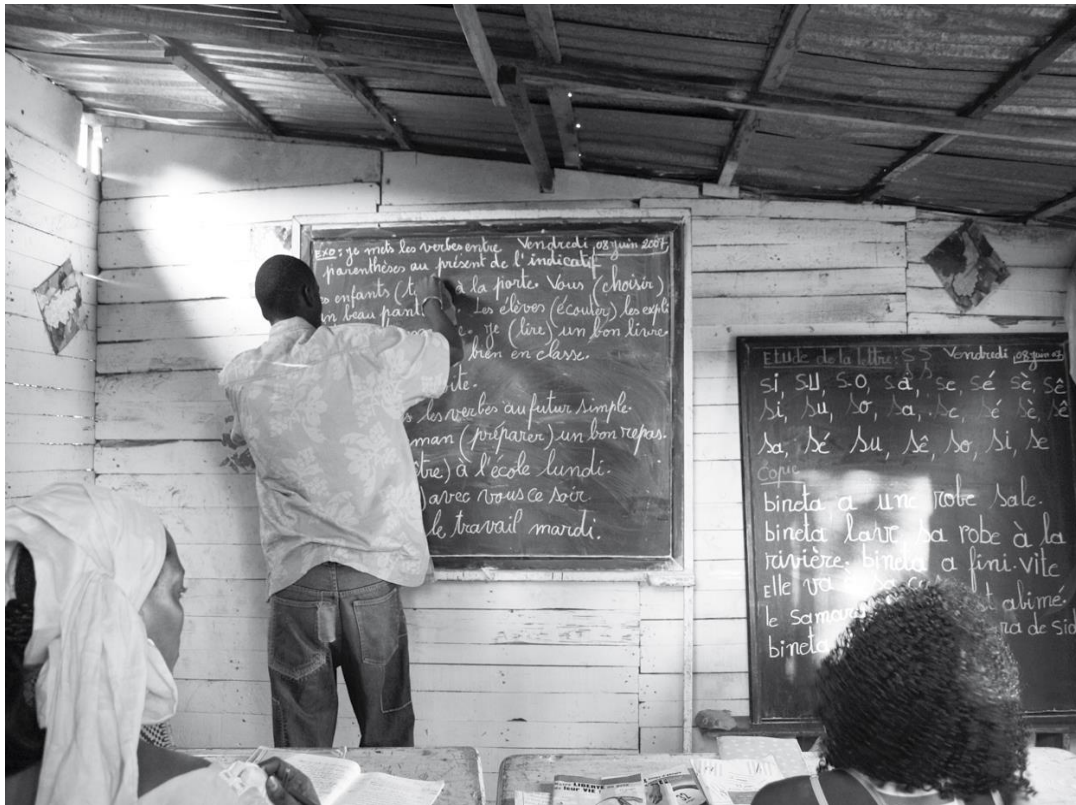 EXO: je mets les verbes entre Vendredi 08 juin 2007
parenthèses au présent de l'indicatif
enfants (t à la porte. Vous (choisir)
un beau pant Les élèves (écouter) les expli
e. je (lire) un bon livre
bien en classe.
ite.
s les verbes au futur simple.
man (préparer) un bon repas.
tre) à l'école lundi.
) avec vous ce soir
le travail mardi.
Etude de la lettre: S s Vendredi 08 juin 07
si, su, so, sa, se, sé, sè, sê
si, su, so, sa, se, sé, sè, sê
sa, sé su, sê, so, si, se
Copie
bineta a une robe sale.
bineta lave sa robe à la
rivière. bineta a fini vite
Elle va à sa ca t abimé.
le Samar ra de Sid
bineta
LIBERTÉ
de leur VIE!